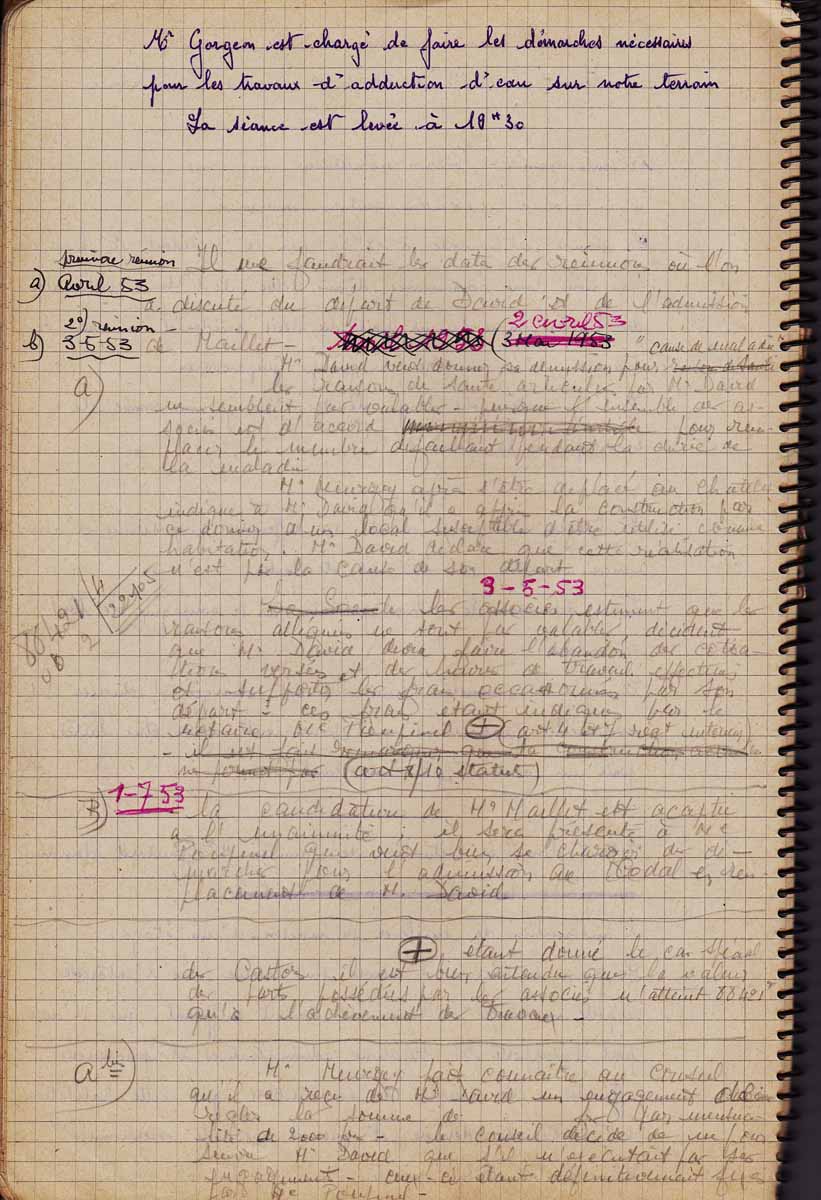 Mr Gorgeon est chargé de faire les démarches nécessaires
pour les travaux d'adduction d'eau sur notre terrain
La séance est levée à 18H30
première réunion Il me faudrait les dates des réunions où l'on
a) Avril 53
a discuté du départ de David et de l'admission
2e) réunion -
b) 3-5-53 de Maillet - 2 avril 53
3 Mai 1953 "cause de maladie"
a) Mr David veut donner sa démission pour
les raisons de santé articulées par Mr David
ne semblent pas valables - l'ensemble des as-
sociés est d'accord pour rem-
placer le membre défaillant pendant la durée de
la maladie
Mr Meurgey après s'être déplacé au
indique à Mr David qu'il a la construction par
ce dernier d'un local susceptible d'être utilisé comme
habitation. Mr David déclare que cette réalisation
n'est pas la cause de son départ
3-5-53
les associés estiment que les
raisons alléguées ne sont pas valables, décident
que Mr David devra faire l'abandon des cotisa-
tions versées et des heures de travail effectuées
et supporter les frais occasionnés par son
départ - ces frais étant indiqués par le
notaire, Me + (art 4 et 7 regt intérieur)
- il est fait remarquer que la construction
ne (art 8/10 statut)
88421 4
08 22105
2
1-7 53
B) la candidature de Mr Maillet est acceptée
à l'unanimité ; il sera présenté à Me
qui veut bien se charger des dé-
marches pour l'admission au en rem-
placement de M. David
+ étant donné le cas spécial
des Castors il est bien entendu que la valeur
des parts possédées par les associés n'atteint 88421
qu'à l'achèvement des travaux -
a bis) Mr Meurgey fait connaître au Conseil
qu'il a reçu de Mr David un engagement
régler la somme de par mensua-
lité de 2000 frs - le conseil décide de ne pour
suivre Mr David que s'il n'exécutait pas ses
engagements - ceux-ci étant définitivement fixés
par Me